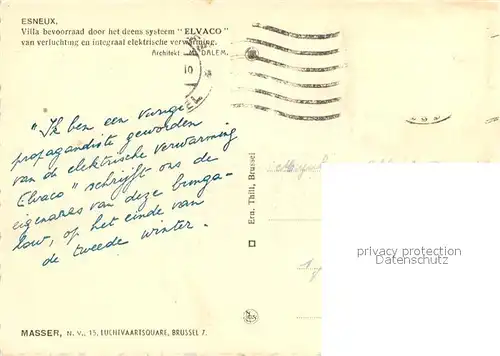 ESNEUX.
Villa bevoorraad door het deens systeem "ELVACO"
van verluchting en integraal elektrische verwarming.
Architekt DALEM.
"Ik ben een vurige
propagandiste geworden
van de elektrische verwarming
Elvaco" schrijft ons de
eigenares van deze bunga-
low, op het einde van
de tweede winter.
Ern. Thill, Brussel
privacy protection
Datenschutz
MASSER, N. V., 15, LUCHTVAARTSQUARE, BRUSSEL 7.